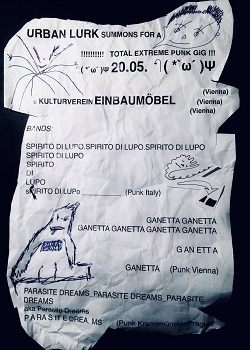 URBAN LURK SUMMONS FOR A
!!!!!!!!!! TOTAL EXTREME PUNK GIG !!!
(*`ω´)Ψ 20.05. (*`ω´)Ψ
(Vienna)
KULTURVEREIN EINBAUMÖBEL (Vienna)
(Vienna)
BANDS:
SPIRITO DI LUPO.SPIRITO DI LUPO.SPIRITO DI LUPO
SPIRITO DI LUPO
SPIRITO
DI
LUPO
SPIRITO DI LUPO ________ (Punk Italy)
GANETTA GANETTA
GANETTA GANETTA GANETTA GANETTA
G AN ETT A
GANETTA (Punk Vienna)
PARASITE DREAMS_PARASITE DREAMS_PARASITE
DREAMS
aka Parasite Dreams
P A R A S IT E D REA MS (Punk